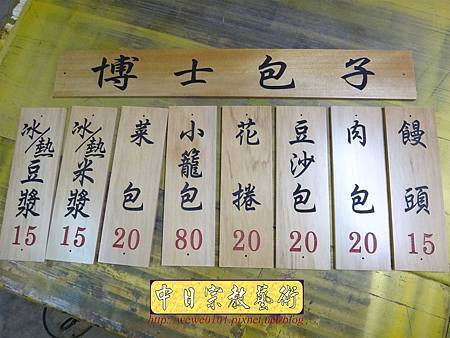 博士包子
冰/熱豆漿
15
冰/熱米漿
15
菜包
20
小籠包
80
花捲
20
豆沙包
20
肉包
20
饅頭
15
中日宗教藝術
http://wewe0101.pixnet.net/blog